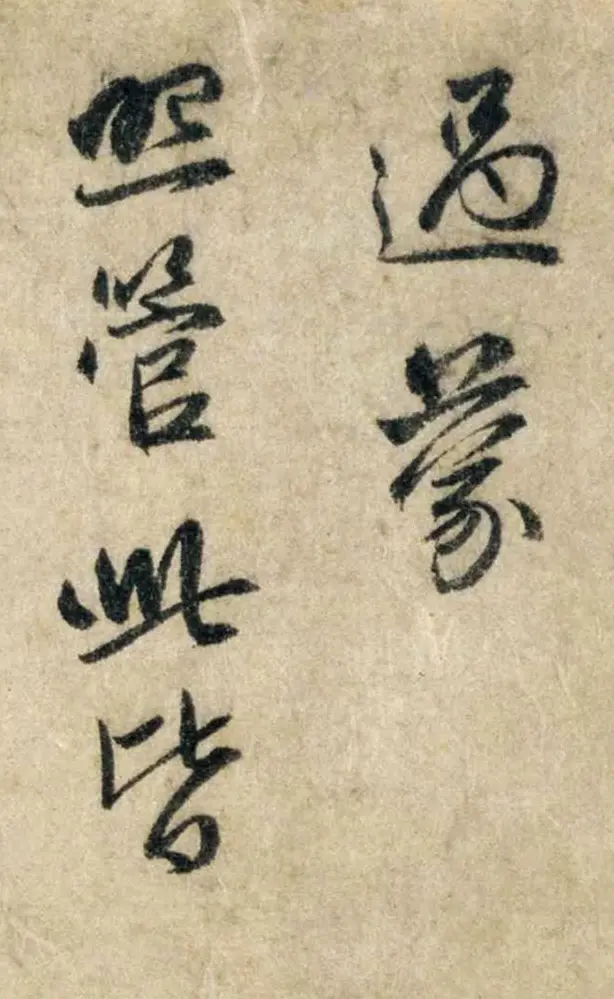 過蒙
照管此皆